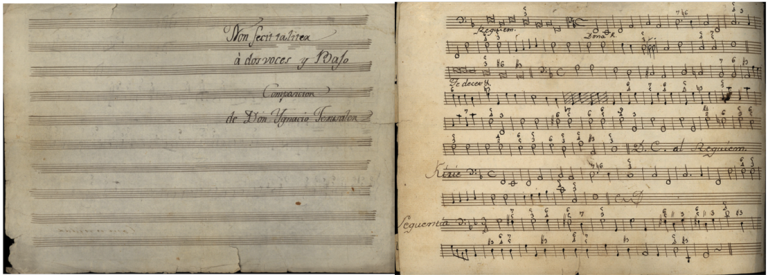 Non fecit taliter
à dos voces y Bajo
Composicion
de Don Ygnacio Jerusalen
Requiem. Dona R
Te decet H
D. C. al Requiem
Kirie
Sequentia